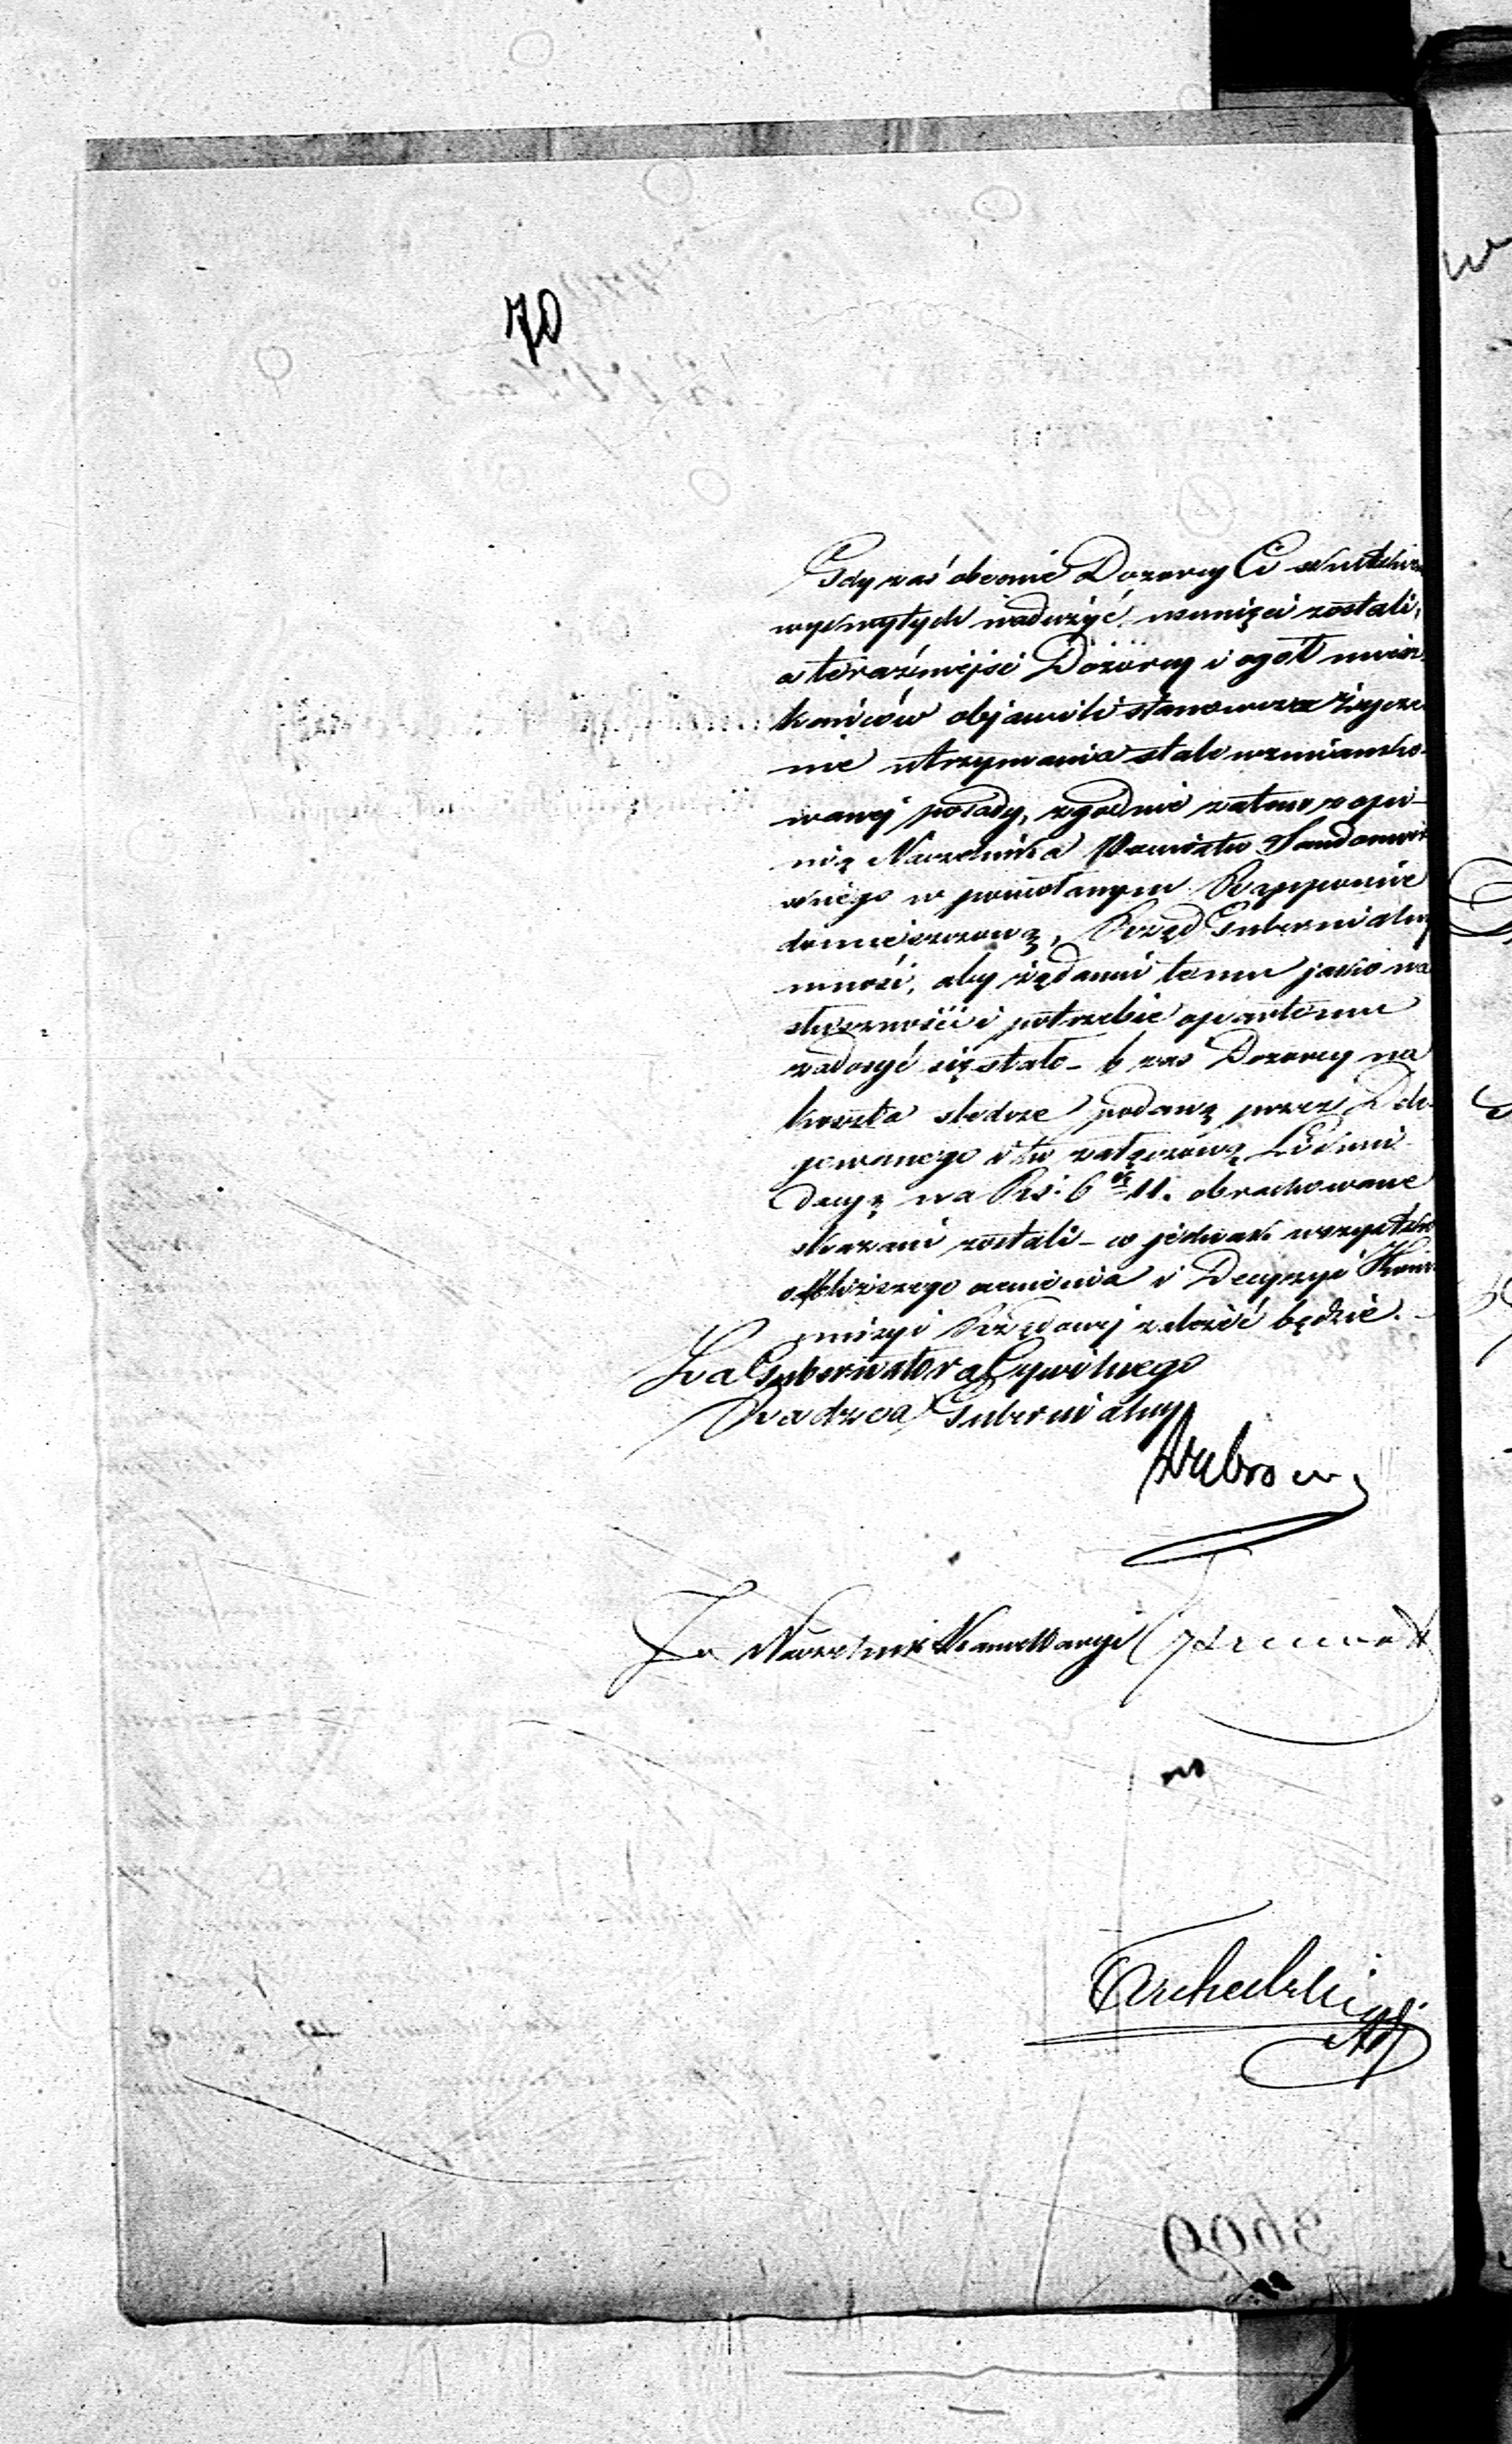 70
Gdy zaś obecnie Dozorcy Ci skutkiem
wykrytych nadużyć usunięci zostali,
a teraźniejsi Dozorcy i ogół miesz-
kańców objawili stanowcze życze
nie utrzymania stale wzmianko-
wanej posady, zgodnie zatem z opi-
nią Naczelnika Powiatu Sandomir
skiego w powołanym Rapporcie
domieszczoną, Rząd Gubernialny
wnosi, aby żądaniu temu jako na
słuszności i potrzebie opartemu
zadosyć się stało – b zas Dozorcy na
koszta śledcze podaną przez Dele-
gowanego i tu załączoną Likwi-
dacyą na Rs. 6 k 11. obrachowane
skazani zostali – co jednak wszystko
od bliższego uznania i Decyzyi Kom
missyi Rządowej zależeć będzie.
Za Gubernatora Cywilnego
Radzca Gubernialny
Za Naczelnik Kancellaryi